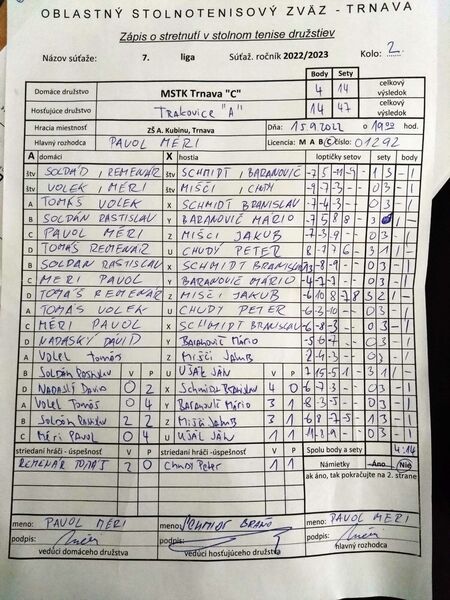 OBLASTNÝ STOLNOTENISOVÝ ZVÄZ - TRNAVA
Zápis o stretnutí v stolnom tenise družstiev
Názov súťaže: 7. liga Súťaž. ročník 2022/2023 Kolo: 2.
Body Sety
Domáce družstvo MSTK Trnava "C" 4 14 celkový výsledok
Hosťujúce družstvo TRAKOVICE "A" 14 47 celkový výsledok
Hracia miestnosť ZŠ A. Kubinu, Trnava Dňa: 15.9.2022 o 19:00 hod.
Hlavný rozhodca PAVOL MÉRI Licencia: M A B C číslo: 01292
A domáci X hostia loptičky setov sety body
štv SOLDÁD, REMENÁR štv SCHMIDT, BARANOVIČ
štv VOLEK, MÉRI štv MIŠČI, CHUDY 03 - 1
A TOMÁŠ VOLEK X SCHMIDT BRANISLAV 03 - 1
B SOLDÁN RASTISLAV Y BARANOVIČ MÁRIO
C PAVOL MÉRI Z MIŠČI JAKUB -7-3-9 03 - 1
D TOMÁŠ REMENÁR U CHUDY PETER 31 1 -
B SOLDÁN RASTISLAV X SCHMIDT BRANISLAV 03 - 1
C MÉRI PAVOL Y BARANOVIČ MÁRIO 03 - 1
D TOMÁŠ REMENÁR Z MIŠČI JAKUB 32 1 -
A TOMÁŠ VOLEK U CHUDY PETER 03 - 1
C MÉRI PAVOL X SCHMIDT BRANISLAV -6-8-3 03 - 1
D NADASKÝ DAVID Y Baranovič Mário 03 - 1
A Volek Tomáš Z Mišči Jakub 03 - 1
B Soldán Rastislav V P U UŠÁK JÁN V P 31 1 -
D NADASKÝ DAVID 0 2 X Schmidt Branislav 4 0 03 - 1
A Volek Tomáš 0 4 Y Baranovič Mário 3 1 03 - 1
B Soldán Rastislav 2 2 Z Mišči Jakub 3 1 13 - 1
C Méri Pavol 0 4 U UŠÁK JÁN 1 1 03 - 1
striedaní hráči - úspešnosť V P striedaní hráči - úspešnosť V P Spolu body a sety 4:14
REMENÁR TOMÁŠ 2 0 Chudy Peter 1 1 Námietky Áno Nie
ak áno, tak pokračujte na 2. strane
meno: PAVOL MÉRI meno: SCHMIDT BRAŇO meno: PAVOL MÉRI
podpis: podpis: podpis:
vedúci domáceho družstva vedúci hosťujúceho družstva hlavný rozhodca